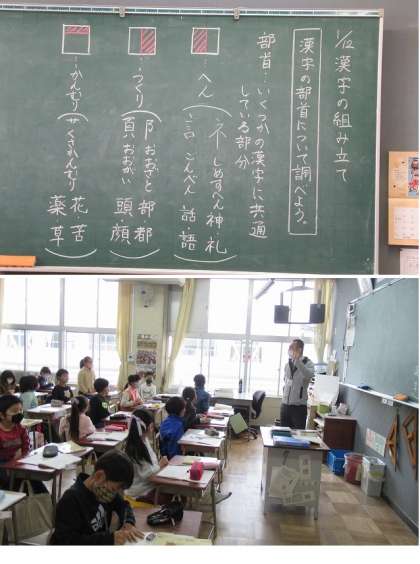 1/12 漢字の組み立て
漢字の部首について調べよう。
部首…いくつかの漢字に共通
している部分
…へん
ネ しめすへん 神・礼
言 ごんべん 話・語
…つくり
阝 おおざと 部・都
頁 おおがい 頭・顔
…かんむり
サ くさかんむり 花・苦
薬・草